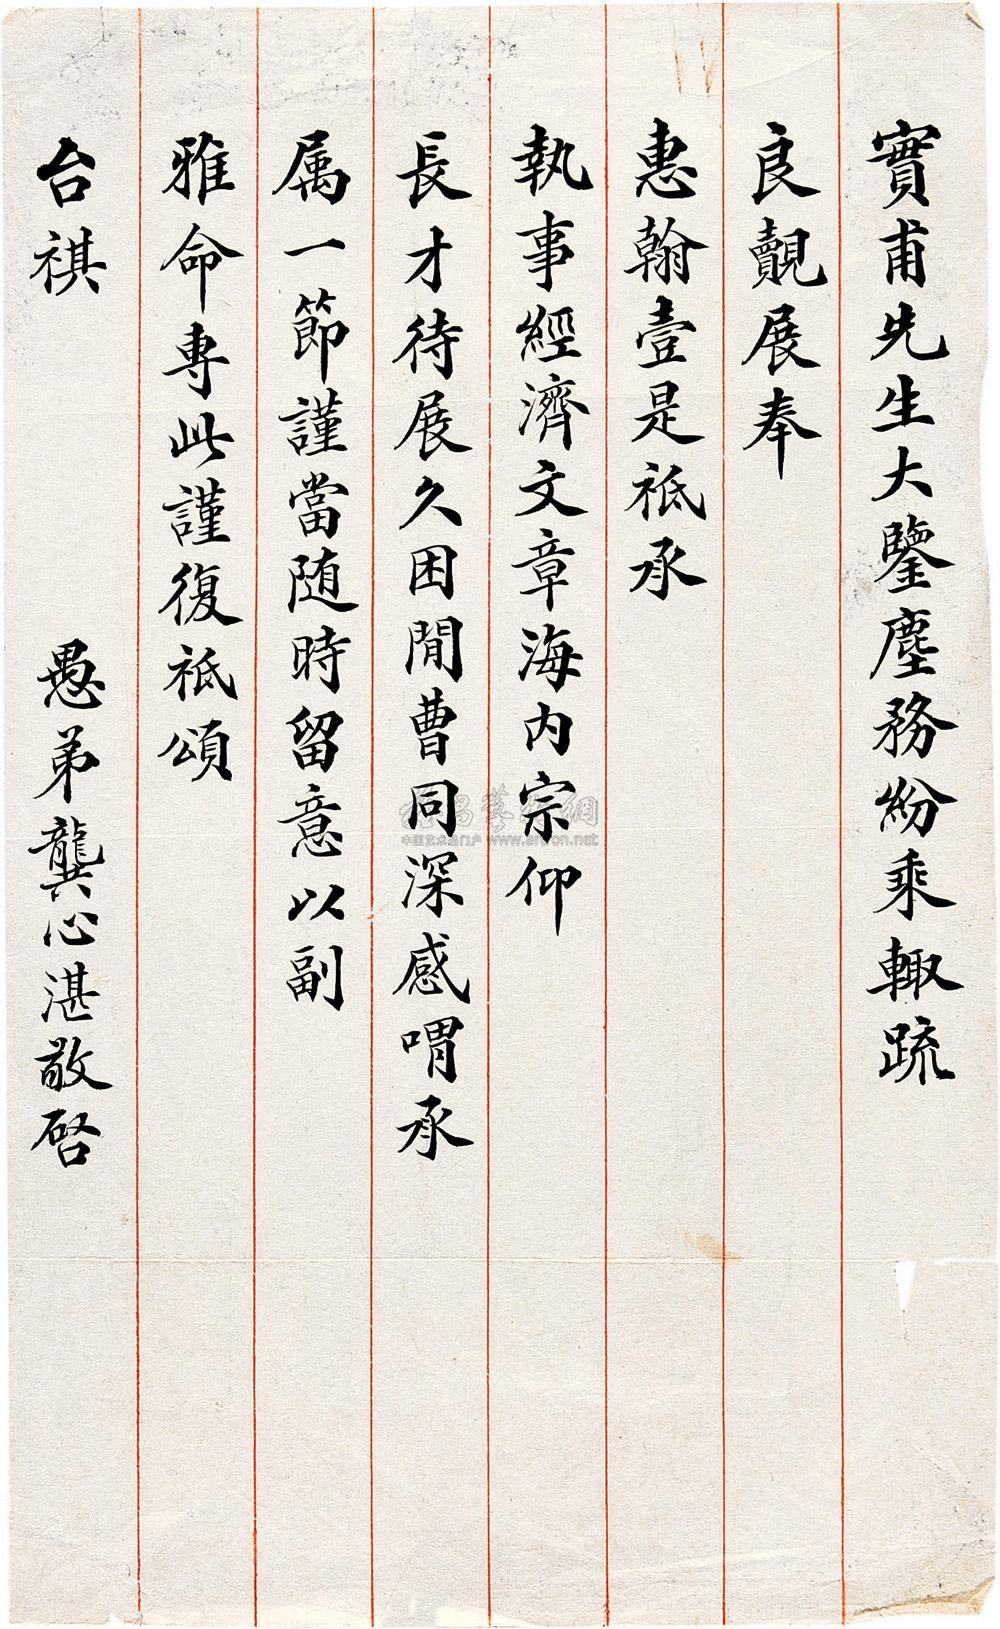 實甫先生大鑒塵務紛乘輙疏
良覿展奉
惠翰壹是祗承
執事經濟文章海内宗仰
長才待展久困閒曹同深感喟承
属一節謹當随時留意以副
雅命專此謹復祗頌
台祺
愚弟龔心湛敬啓
中国艺术品门户 www.artron.net